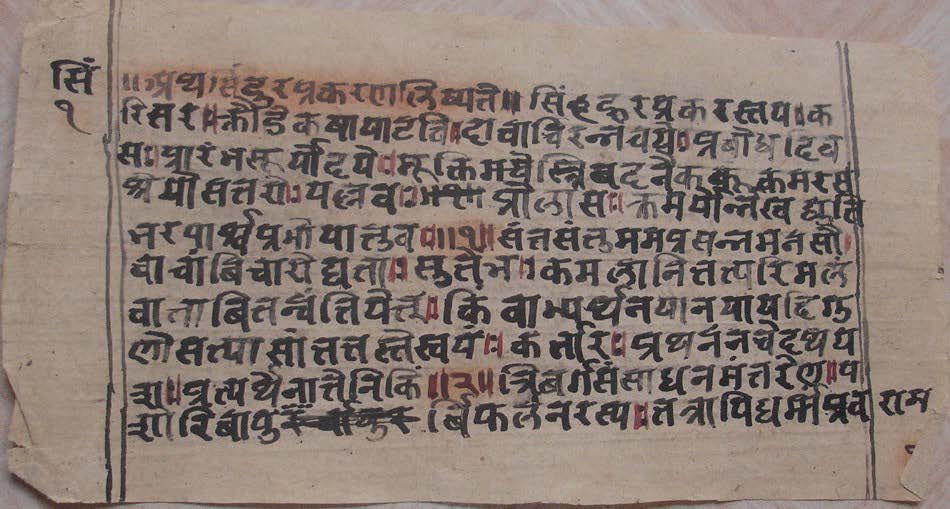 सिं
१
॥अथ सिंदुरप्रकरणलिष्यते॥ सिंदुरप्रकरस्तप॥क
रिसर॥क्रौडे कषायाटवि॥दावार्चिरन्नचय॥प्रबोधदिव
स॥प्रारंभसूर्योदये॥मुक्ति
श्रेयो यल्लव॥प्रोलास॥क्रमयोर्नख द्युति
भरपार्श्वप्रभोपातुव॥॥१॥संतसंतुममप्रसन्नमनसौ॥
बाचांबिचारोद्यता॥सुतेंभ॥कमलानितत्परिमलं
वाताबितन्वंतियेत्॥किं वाभ्यर्थनयानयायदिगु
णौसत्पासांततस्तेस्वयं॥कर्तार॥प्रथनंनचेदथय
श॥प्रत्यर्थनातेनकिं॥॥२॥त्रिबर्गसंसाधनमंतरेण॥प
शोरिबायु र्बिफलंनरस्य॥तत्रापिधर्मप्रव राम